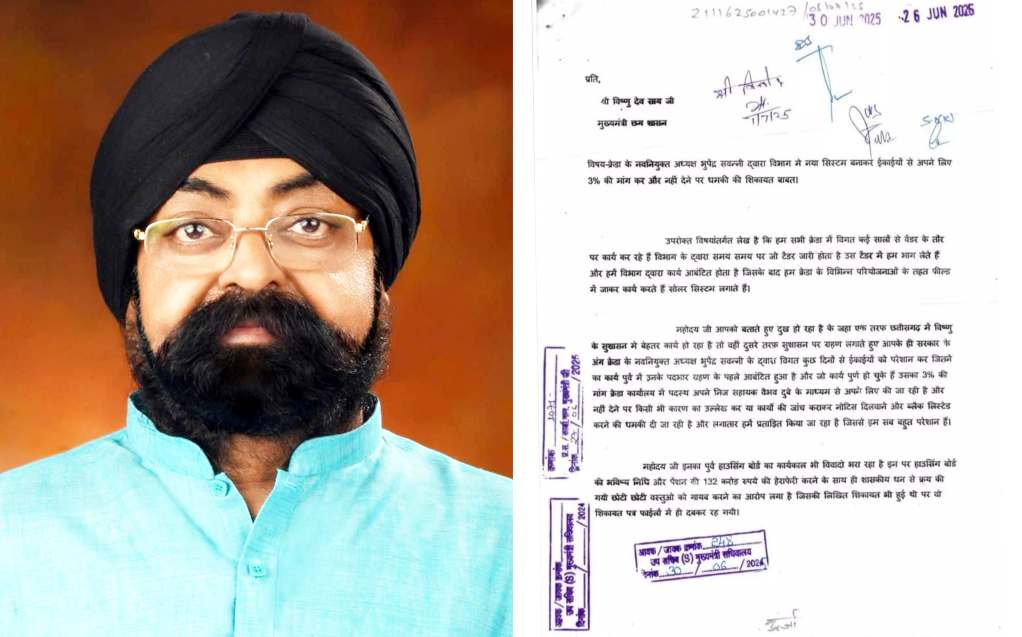 2111625001427/05/07/25
30 JUN 2025
26 JUN 2025
प्रति,
श्री विष्णु देव साय जी
मुख्यमंत्री छग शासन
1/7/25
विषय-क्रेडा के नवनियुक्त अध्यक्ष भुपेंद्र सवन्नी द्वारा विभाग मे नया सिस्टम बनाकर ईकाईयों से अपने लिए
3% की मांग कर और नहीं देने पर धमकी की शिकायत बाबत।
उपरोक्त विषयांतर्गत लेख है कि हम सभी क्रेडा में विगत कई सालों से वेंडर के तौर
पर कार्य कर रहे हैं विभाग के द्वारा समय समय पर जो टेंडर जारी होता है उस टेंडर में हम भाग लेते हैं
और हमें विभाग द्वारा कार्य आबंटित होता है जिसके बाद हम क्रेडा के विभिन्न परियोजनाओं के तहत फील्ड
में जाकर कार्य करते हैं सोलर सिस्टम लगाते हैं।
महोदय जी आपको बताते हुए दुख हो रहा है के जहा एक तरफ छत्तीसगढ़ में विष्णु
के सुशासन में बेहतर कार्य हो रहा है तो वही दुसरे तरफ सुशासन पर ग्रहण लगाते हुए आपके ही सरकार के
अंग क्रेडा के नवनियुक्त अध्यक्ष भुपेंद्र सवन्नी के द्वारा विगत कुछ दिनों से ईकाईयों को परेशान कर जितने
का कार्य पुर्व में उनके पदभार ग्रहण के पहले आबंटित हुआ है और जो कार्य पुर्ण हो चुके हैं उसका 3% की
मांग क्रेडा कार्यालय में पदस्थ अपने निज सहायक वैभव दुबे के माध्यम से अपने लिए की जा रही है और
नहीं देने पर किसी भी कारण का उल्लेख कर या कार्यो की जांच कराकर नोटिस दिलवाने और ब्लैक लिस्टेड
करने की धमकी दी जा रही है और लगातार हमें प्रताड़ित किया जा रहा है जिससे हम सब बहुत परेशान हैं।
महोदय जी इनका पुर्व हाउसिंग बोर्ड का कार्यकाल भी विवादो भरा रहा है इन पर हाउसिंग बोर्ड
की भविष्य निधि और पेंशन की 132 करोड रुपये की हेराफेरी करने के साथ ही शासकीय धन से क्रय की
गयी छोटी छोटी वस्तुओ को गायब करने का आरोप लगा है जिसकी लिखित शिकायत भी हुई थी पर वो
शिकायत पत्र फाईलों में ही दबकर रह गयी।
आवक / जावक क्रमांक 248
उप सचिव (S) मुख्यमंत्री सचिवालय
दिनांक 30 / 06 / 2024
आवक / जावक क्रमांक
उप सचिव (S) मुख्यमंत्री सचिवालय
दिनांक / / 2024